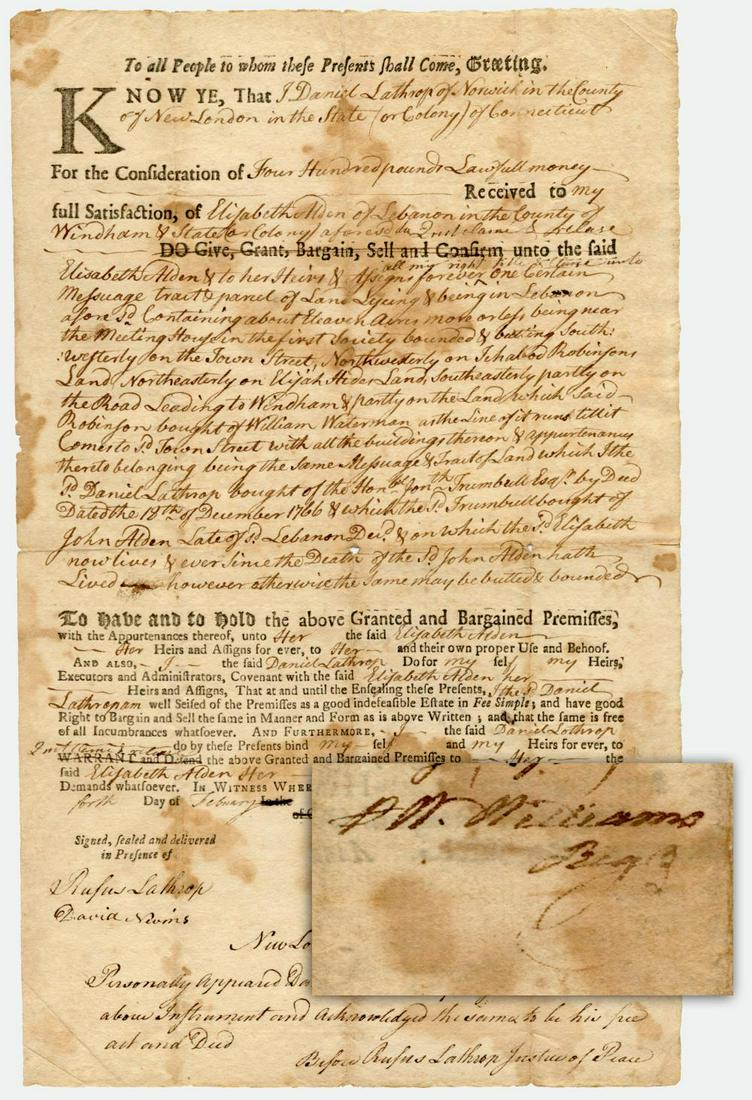 To all People to whom these Presents shall Come, Greeting.
KNOW YE, That I Daniel Lathrop of Norwich in the County
of New London in the State (or Colony) of Connecticut
For the Consideration of Four Hundred pounds Lawfull money
Received to my
full Satisfaction, of Elisabeth Alden of Lebanon in the County of
Windham & State (or Colony) aforesd do Quitclaime & release
DO Give, Grant, Bargain, Sell and Confirm unto the said
all my right title unto
Elisabeth Alden & to her Heirs & Assigns forever one Certain
Messuage tract & parcel of Land Lyeing & being in Lebanon
afore sd. Containing about Eleaven Acres more or less being near
the Meeting House in the first Society bounded & butting South:
:westerly on the Town Street, Northwesterly on Ichabod Robinsons
Land Northeasterly on Elijah Hides Land, Southeasterly partly on
the Road Leading to Windham & partly on the Land, which said
Robinson bought of William Waterman as the Line of it runs till it
Comes to sd. Town Street with all the buildings thereon & appurtenances
thereto belonging being the Same Messuage & Tract of Land which I the
sd. Daniel Lathrop bought of the Honble. Jonth. Trumbull Esqr. by Deed
Dated the 18th. of December 1766 & which the sd. Trumbull bought of
John Alden Late of sd. Lebanon Decd. & on which the sd. Elisabeth
now lives & ever Since the Death of the sd. John Alden hath
Lived however otherwise the Same may be butted & bounded
To Have and to Hold the above Granted and Bargained Premisses,
with the Appurtenances thereof, unto Her the said Elisabeth Alden
Her Heirs and Assigns for ever, to Her and their own proper Use and Behoof.
AND ALSO, I the said Daniel Lathrop Do for my self my Heirs,
Executors and Administrators, Covenant with the said Elisabeth Alden her
Heirs and Assigns, That at and until the Ensealing these Presents, I the sd. Daniel
Lathrop am well Seised of the Premisses as a good indefeasible Estate in Fee Simple; and have good
Right to Bargain and Sell the same in Manner and Form as is above Written; and that the same is free
of all Incumbrances whatsoever. AND FURTHERMORE, I the said Daniel Lothrop
do by these Presents bind my self and my Heirs for ever, to
WARRANT and Defend the above Granted and Bargained Premisses to Her the
said Elisabeth Alden Her
Demands whatsoever. IN WITNESS WHER
forth Day of Febuary In the
of
Signed, sealed and delivered
in Presence of
Rufus Lathrop
David Nevins
New Lo
Personally Appeared Da
above Instrument and Acknowledged the same to be his free
act and Deed
Before Rufus Lathrop Justice of Peace
W. Williams